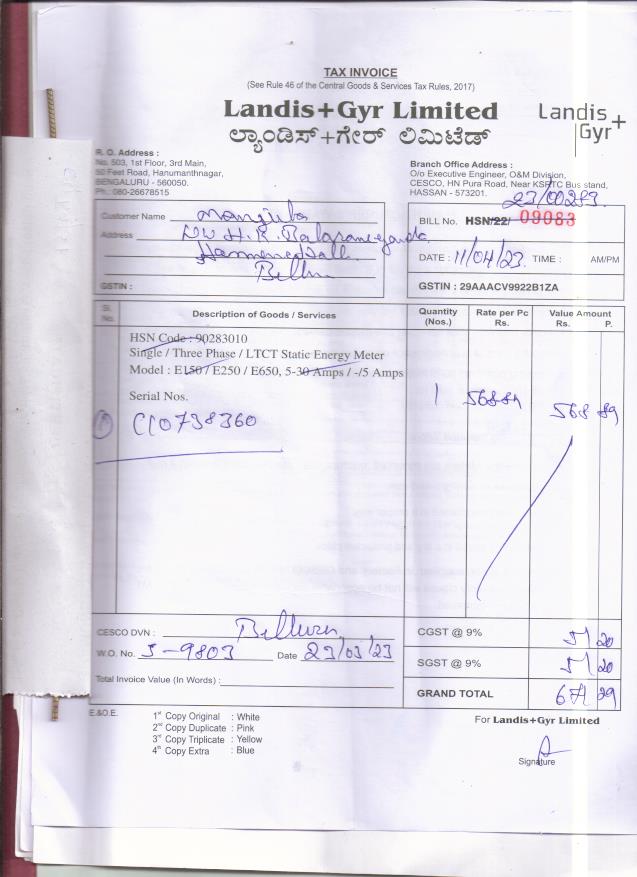 TAX INVOICE
(See Rule 46 of the Central Goods & Services Tax Rules, 2017)
Landis+Gyr Limited
ಲ್ಯಾಂಡಿಸ್+ಗೇರ್ ಲಿಮಿಟೆಡ್
Landis+
Gyr
R. O. Address :
No. 503, 1st Floor, 3rd Main,
50 Feet Road, Hanumanthnagar,
BENGALURU - 560050.
Ph.: 080-26678515
Branch Office Address :
O/o Executive Engineer, O&M Division,
CESCO, HN Pura Road, Near KSRTC Bus stand,
HASSAN - 573201.
23/00283
Customer Name Manjula
Address
GSTIN :
BILL No. HSN/22/ 09083
DATE : 11/04/23 TIME : AM/PM
GSTIN : 29AAACV9922B1ZA
Sl. No. Description of Goods / Services Quantity (Nos.) Rate per Pc Rs. Value Amount Rs. P.
HSN Code : 90283010
Single / Three Phase / LTCT Static Energy Meter
Model : E150 / E250 / E650, 5-30 Amps / -/5 Amps
Serial Nos. 1 568 89
C10738360
CESCO DVN :
W.O. No. 5-9803 Date 23/03/23
Total Invoice Value (In Words) :
CGST @ 9% 51 20
SGST @ 9% 51 20
GRAND TOTAL 671 29
E.&O.E.
1st Copy Original : White
2nd Copy Duplicate : Pink
3rd Copy Triplicate : Yellow
4th Copy Extra : Blue
For Landis+Gyr Limited
Signature